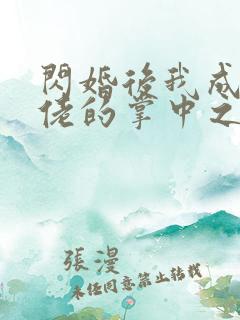 閃婚後我成
佬的掌中之
張漫
未經同意禁止轉載